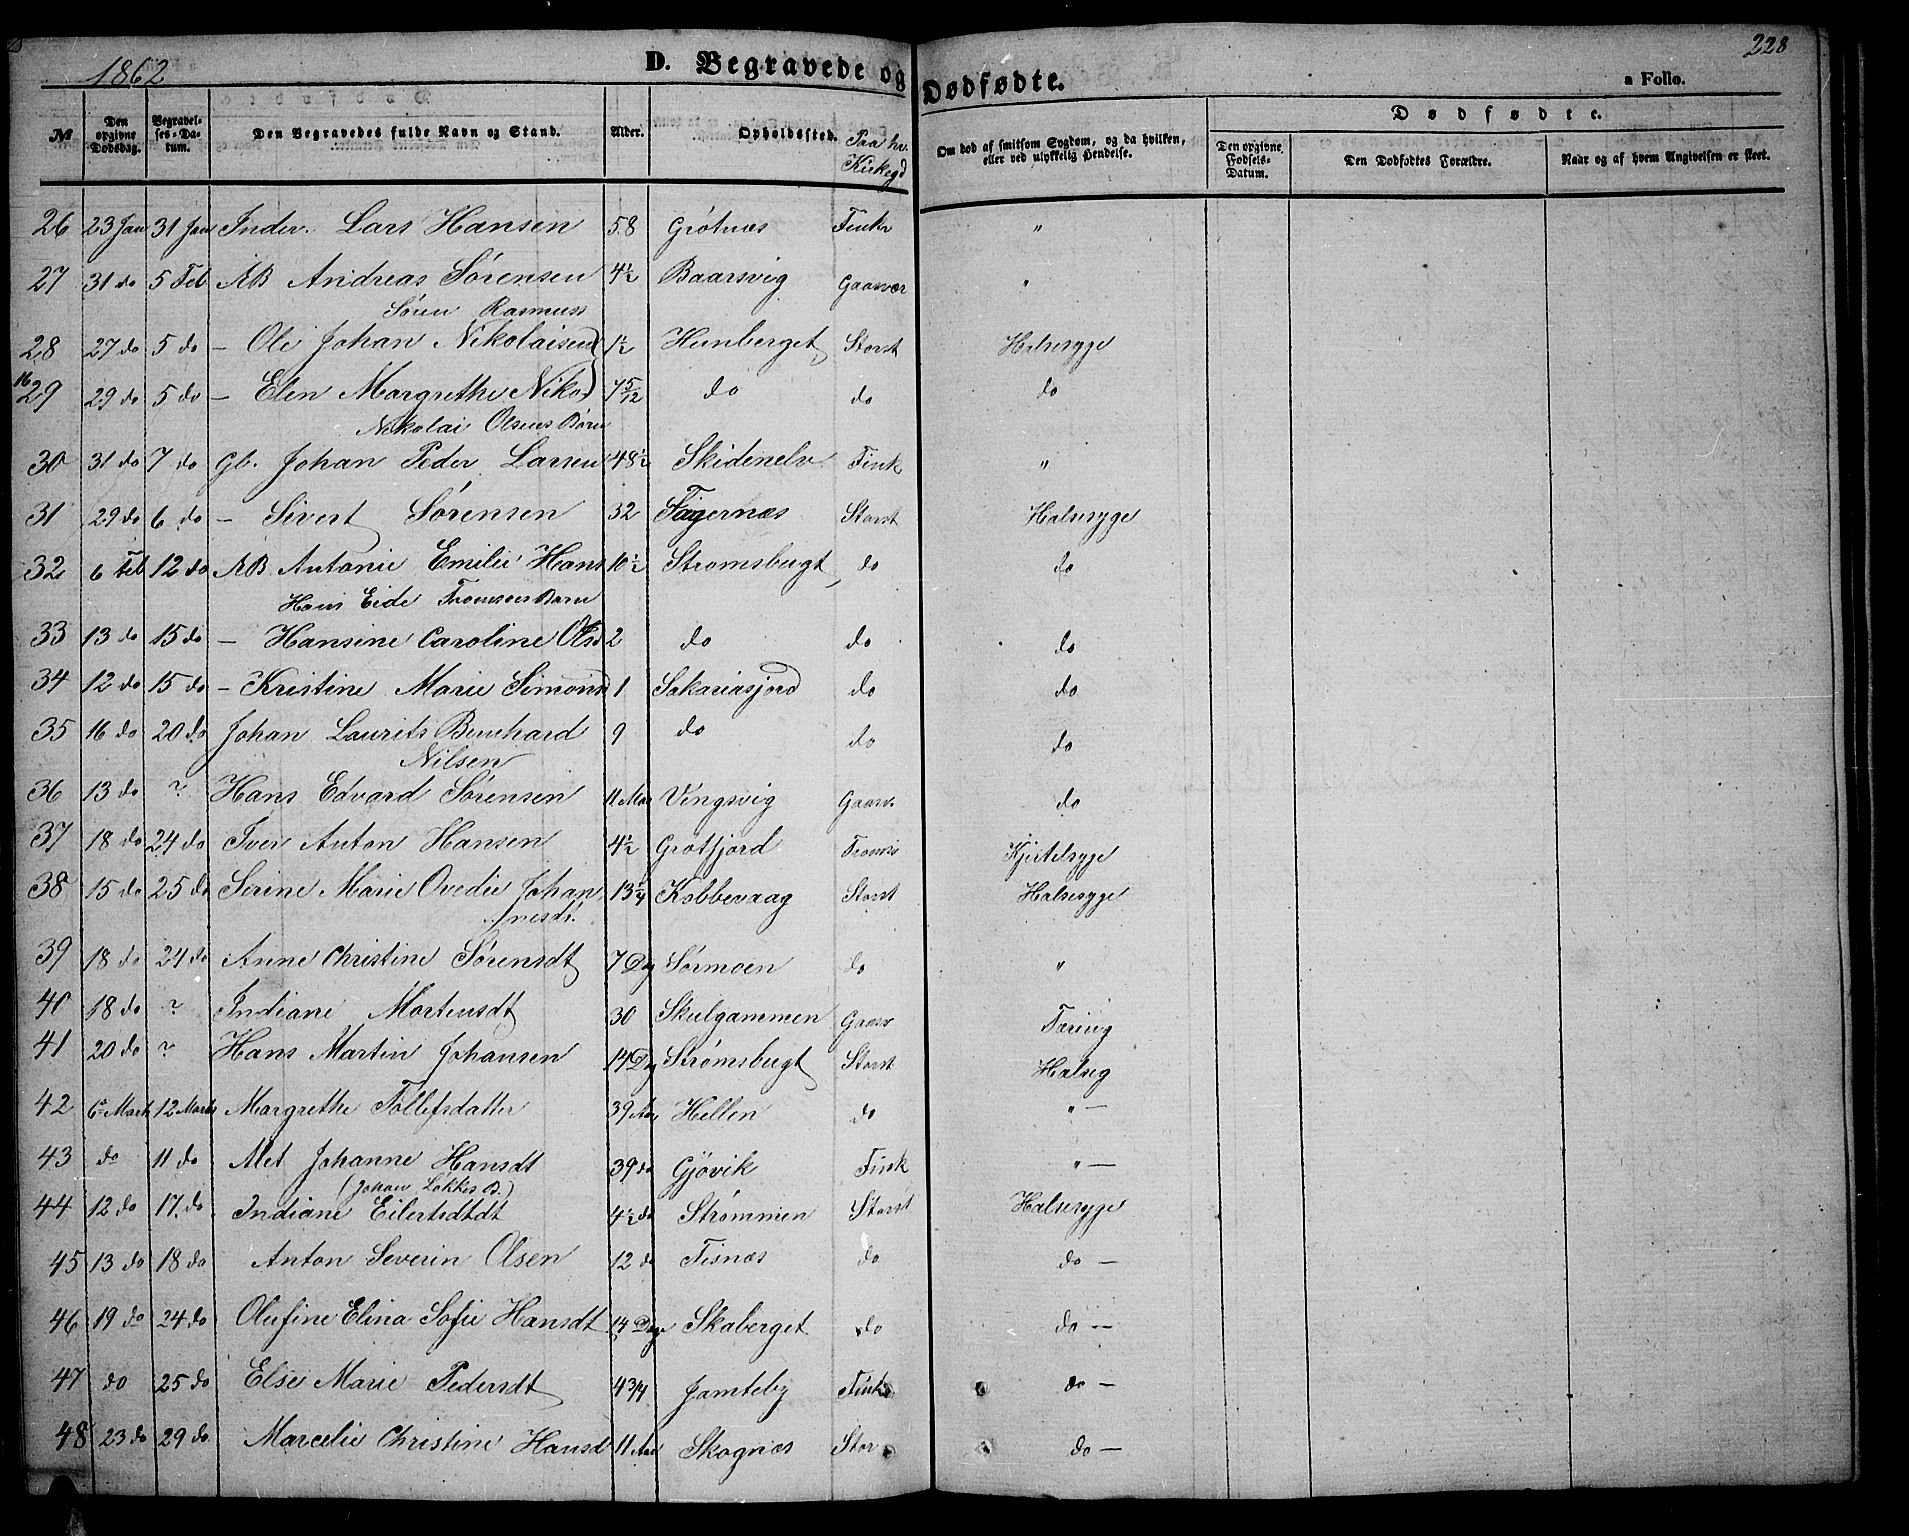 1862
D. Begravede og Dødfødte.
228
a Folio.
№
Den opgivne Dødsdag.
Begravelses-Datum.
Den Begravedes fulde Navn og Stand.
Alder.
Opholdssted.
Paa hv. Kirkegd
Om død af smitsom Sygdom, og da hvilken, eller ved ulykkelig Hendelse.
Dødfødte.
Den opgivne Fødsels-Datum.
Den Dødfødtes Forældre.
Naar og af hvem Angivelsen er skeet.
26 23 Jan 31 Jan Inder. Lars Hansen 58 Grötnæs Finkr "
27 31 do 5 Feb ÆB Andreas Sörensen 4½ Baarsvig Gaasvær "
Sören Rasmuss
28 27 do 5 do – Ole Johan Nikolaisen 1½ Hunberget Storst Halsesyge
16
29 29 do 5 do – Elen Margrethe Niko 7 5/12 do do do
Nikolai Olsens Börn
30 31 do 7 do Gb. Johan Peder Larsen 48½ Skidenelv Fink "
31 29 do 6 do – Sivert Sörensen 32 Fagernæs Storst Halsesyge
32 6 Feb 12 do ÆB Antonie Emilie Hans 10½ Stromsbugt do do
Hans Eide Tromsöes Barn
33 13 do 15 do – Hansine Caroline Olsd 2 do do do
34 12 do 15 do – Kristine Marie Simonsd 1 Sakariasjord do do
35 16 do 20 do Johan Laurits Bernhard 9 do do do
Nilsen
36 13 do ? Hans Edvard Sörensen 11 Maa Vengsvig Gaasv do
37 18 do 24 do Iver Anton Hansen 4½ Grötfjord Troms Kjertelsyge
38 15 do 25 do Serine Marie Ovedie Johan 13¼ Kobbevaag Storst Halsesyge
nesdt.
39 18 do 24 do Anne Christine Sörensdt 7 Dag Sörmoen do "
40 18 do ? Indiane Mortensdt 30 Skulgammen Gaasv Tæring
41 20 do ? Hans Martin Johansen 14 Dg Strømsbugt Storst Halsyg
42 6te Marts 12 Marts Margrethe Tollefsdatter 39 Aar Hellen do " –
43 do 11 do Alet Johanne Hansdt 39 do Gjövik Fink " –
(Johan Lökkes B.)
44 12 do 17 do Indiane Eilertsdtdt 4½ do Strömmen Storst Halsesyge
45 13 do 18 do Anton Severin Olsen 12 do Tisnæs do do –
46 19 do 24 do Olufine Elina Sofie Hansdt 14 Dage Skaberget do do –
47 do 25 do Else Marie Pedersdt 4 3/4 Jamteby Fink do –
48 23 do 29 do Marcelie Christine Hansd 11 Aar Skognæs Stor do –